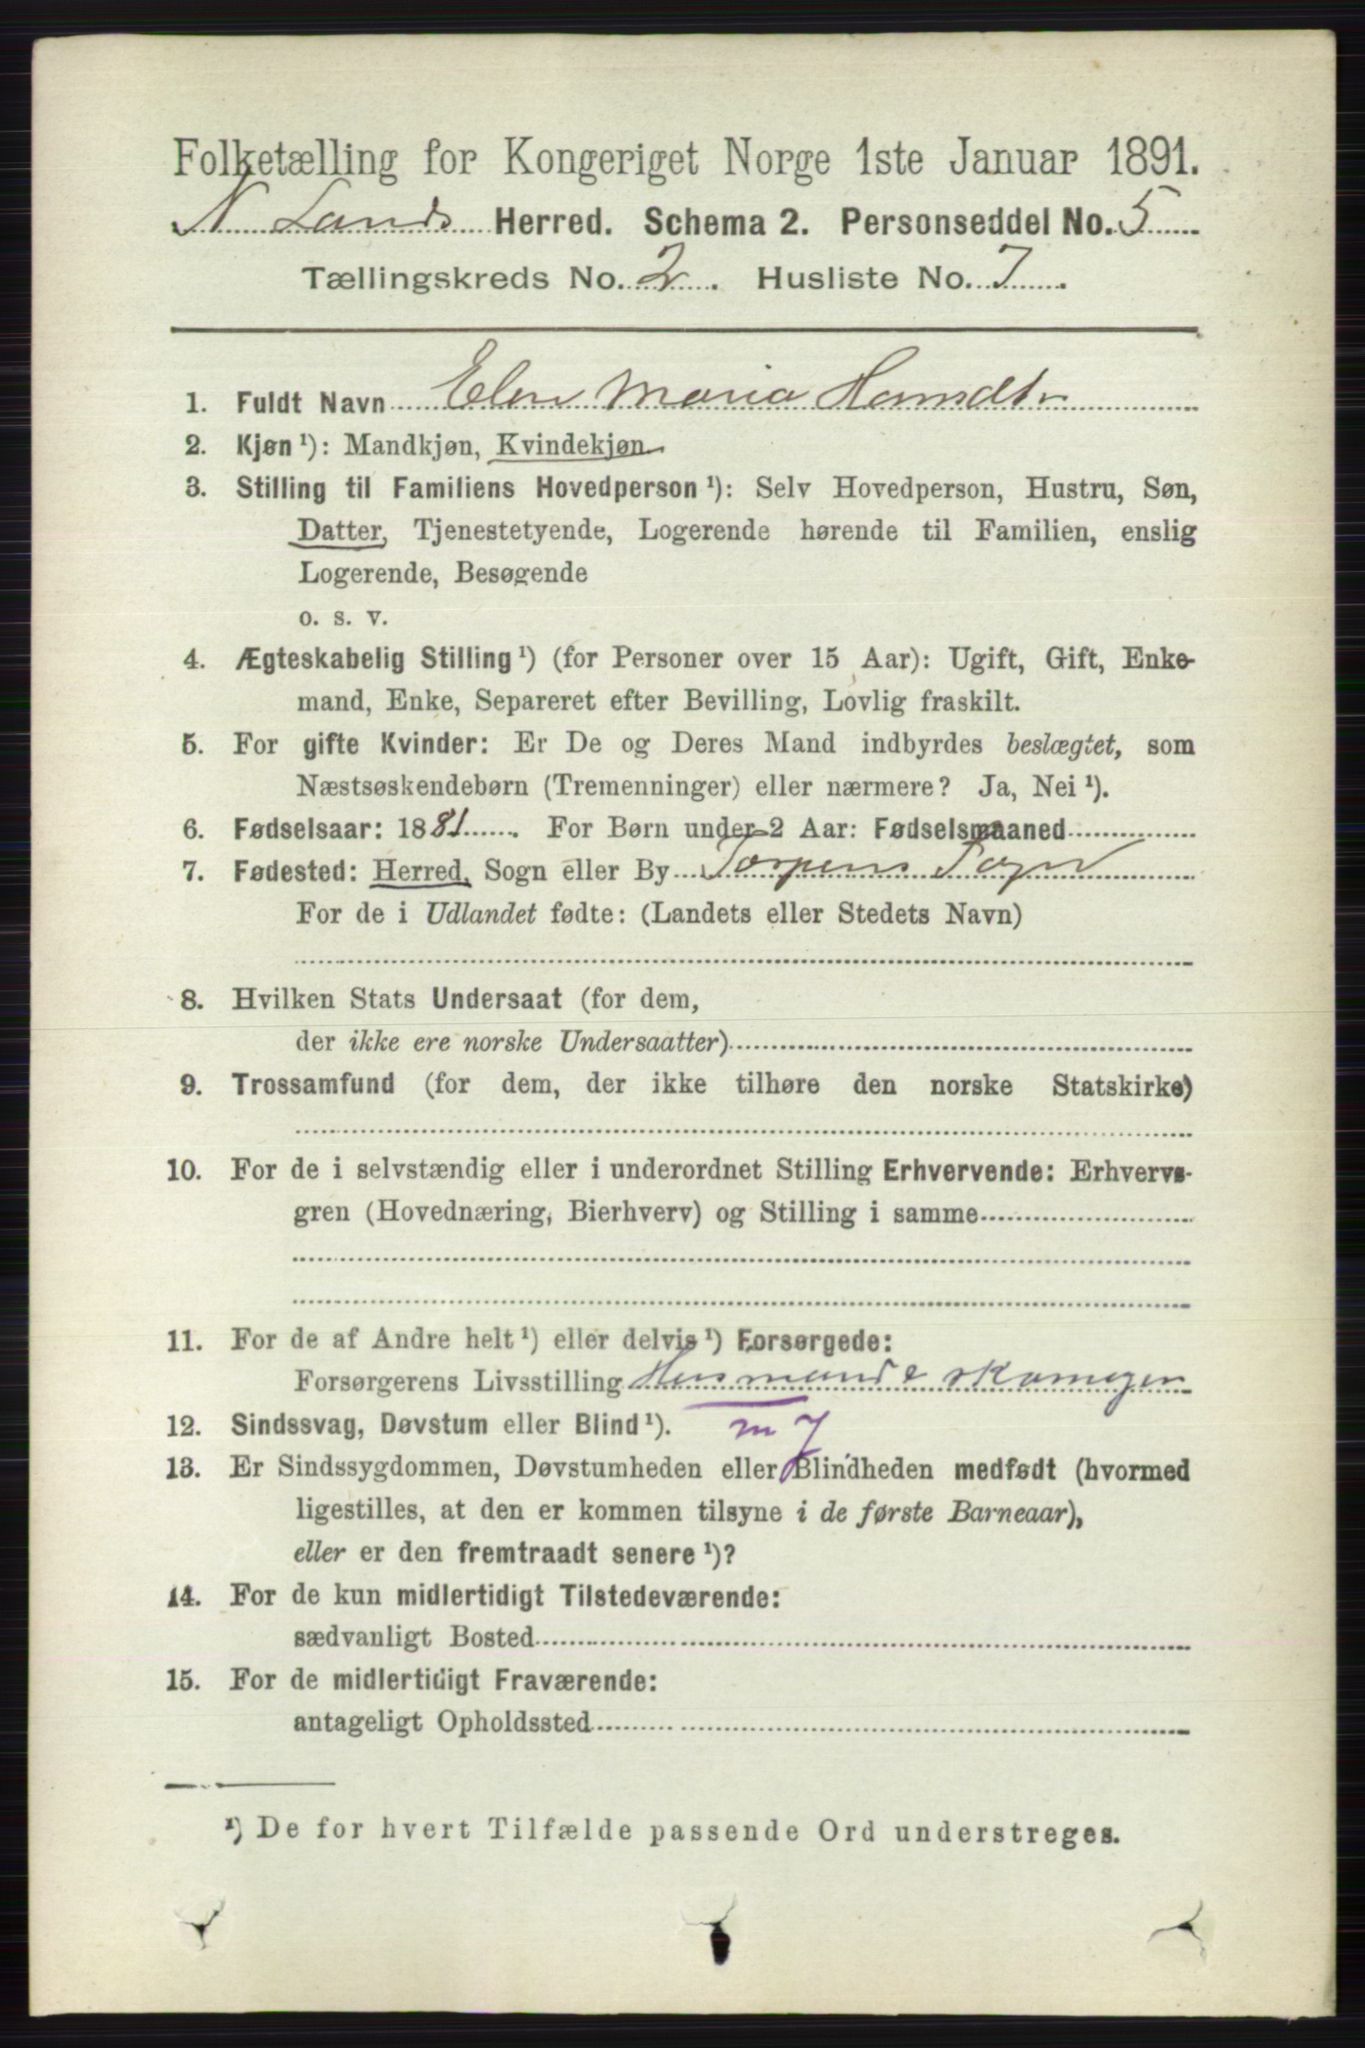 Folketælling for Kongeriget Norge 1ste Januar 1891.
N. Lands Herred. Schema 2. Personseddel No. 5
Tællingskreds No. 2. Husliste No. 7.
1. Fuldt Navn Elen Maria Hansdtr
2. Kjøn ¹): Mandkjøn, Kvindekjøn.
3. Stilling til Familiens Hovedperson ¹): Selv Hovedperson, Hustru, Søn,
Datter, Tjenestetyende, Logerende hørende til Familien, enslig
Logerende, Besøgende
o. s. v.
4. Ægteskabelig Stilling ¹) (for Personer over 15 Aar): Ugift, Gift, Enke-
mand, Enke, Separeret efter Bevilling, Lovlig fraskilt.
5. For gifte Kvinder: Er De og Deres Mand indbyrdes beslægtet, som
Næstsøskendebørn (Tremenninger) eller nærmere? Ja, Nei ¹).
6. Fødselsaar: 1881. For Børn under 2 Aar: Fødselsmaaned
7. Fødested: Herred, Sogn eller By Torpens Sogn
For de i Udlandet fødte: (Landets eller Stedets Navn)
8. Hvilken Stats Undersaat (for dem,
der ikke ere norske Undersaatter)
9. Trossamfund (for dem, der ikke tilhøre den norske Statskirke)
10. For de i selvstændig eller i underordnet Stilling Erhvervende: Erhvervs-
gren (Hovednæring, Bierhverv) og Stilling i samme
11. For de af Andre helt ¹) eller delvis ¹) Forsørgede:
Forsørgerens Livsstilling Husmand &
12. Sindssvag, Døvstum eller Blind ¹). m 7
13. Er Sindssygdommen, Døvstumheden eller Blindheden medfødt (hvormed
ligestilles, at den er kommen tilsyne i de første Barneaar),
eller er den fremtraadt senere ¹)?
14. For de kun midlertidigt Tilstedeværende:
sædvanligt Bosted
15. For de midlertidigt Fraværende:
antageligt Opholdssted
¹) De for hvert Tilfælde passende Ord understreges.